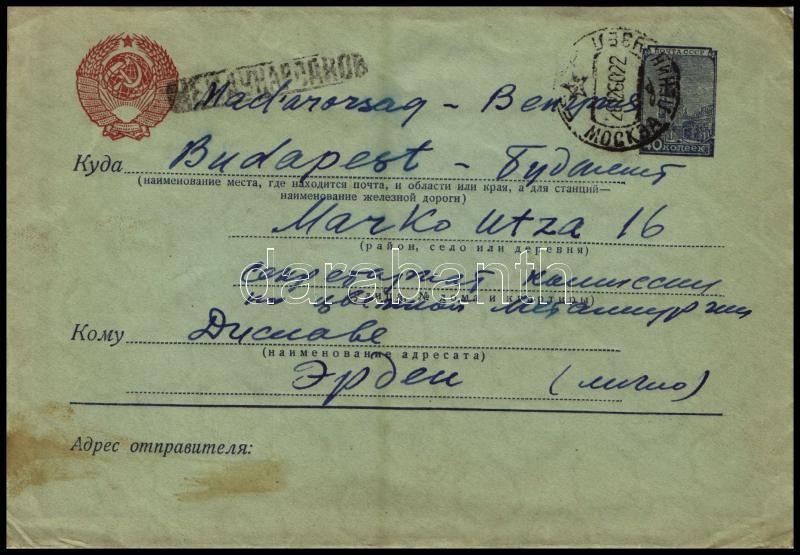 МЕЖДУНАРОДНОЕ
ПОЧТА СССР
40 КОПЕЕК
МОСКВА
Madarorsag - Венгрия
Куда Budapest - Будапешт
(наименование места, где находится почта, и области или края, а для станций—
наименование железной дороги)
Marko utza 16
(район, село или деревня)
Секретариат Комиссии
№ дома и квартиры)
по цветной металлургии
Кому
(наименование адресата)
Эрдеи (лично)
Адрес отправителя:
darabanth